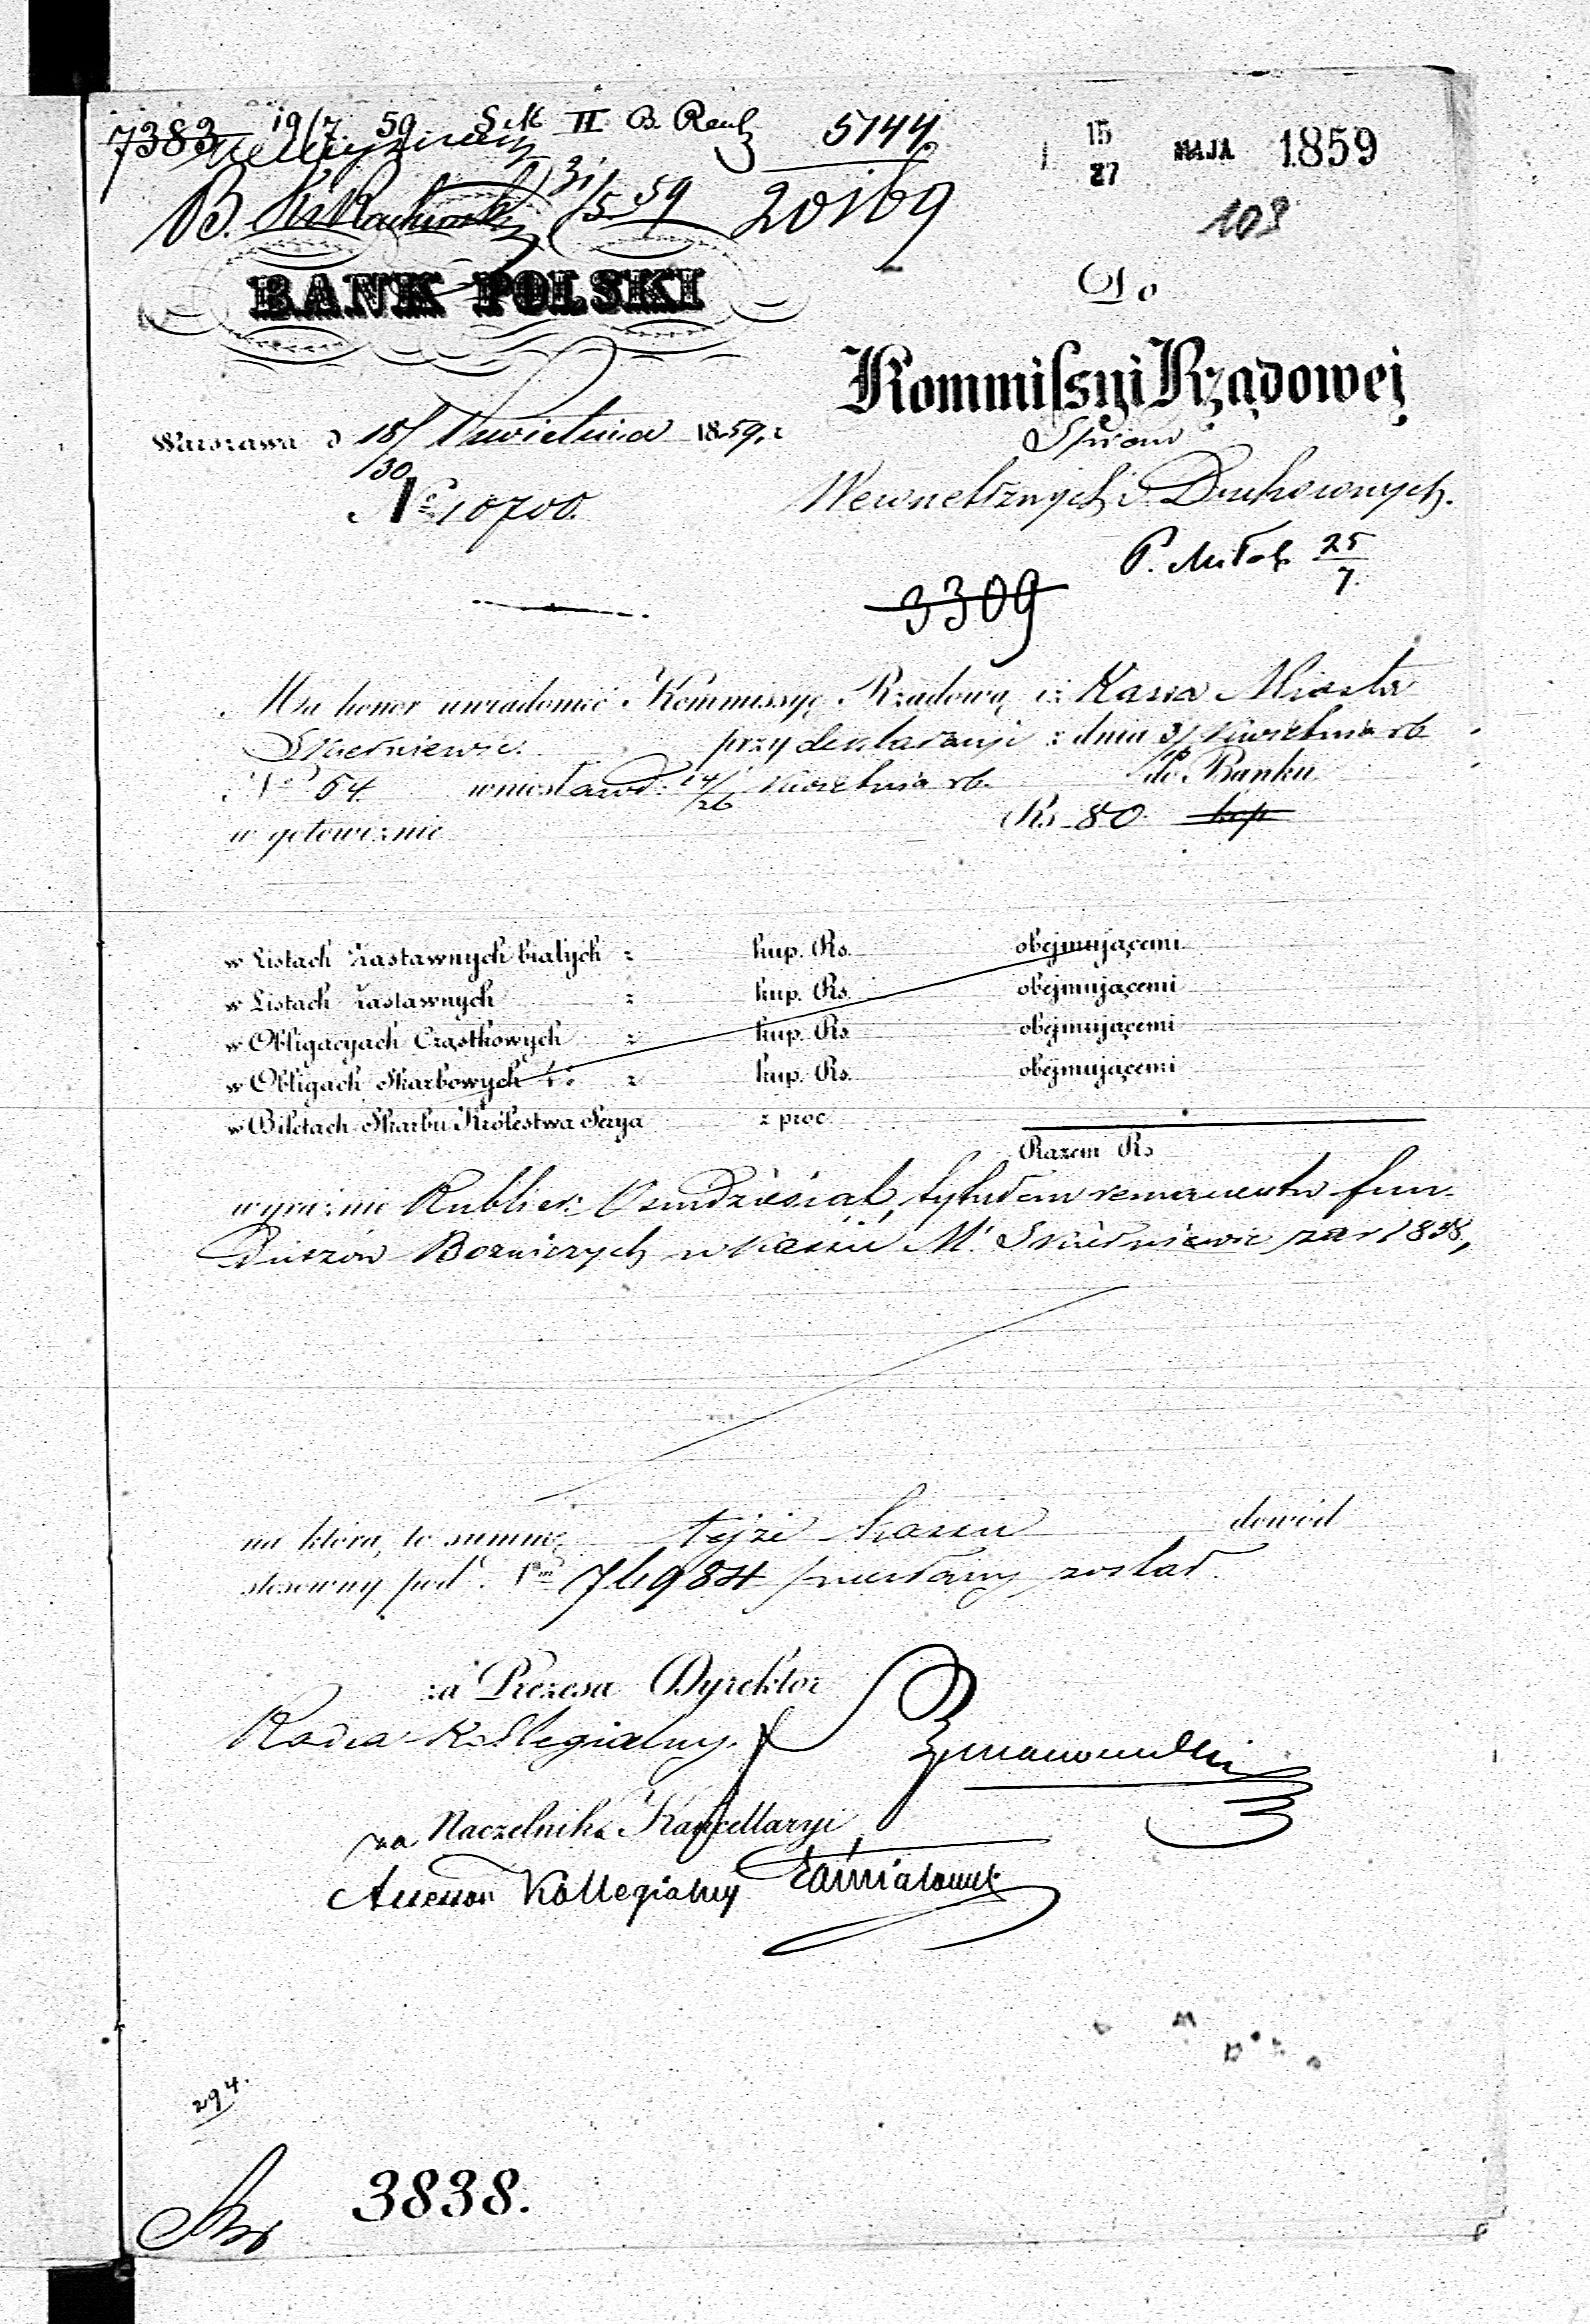 7383 19/7 59 Sek II B. 5144
15/27 MAJA 1859
B. 31/5 59 20169
103
BANK POLSKI
Do
Kommissyi Rządowej
Warszawa d 18/30 Kwietnia 1859 r
Spraw
Nº 10700.
Wewnetrznych i Duchownych.
P. 25/7
3309
Ma honor uwiadomić Kommissyę Rządową, iż Kassa Miasta
Skierniewic przy deklaracyi z dnia Kwietnia rb
Nº 54 wniosła wd. 14/26 Kwietnia rb. do Banku
w gotowiznie Rs 80 kop
w Listach Zastawnych białych z kup. Rs. obejmującemi
w Listach Zastawnych z kup. Rs. obejmującemi
w Obligacyach Cząstkowych z kup. Rs. obejmującemi
w Obligach Skarbowych z kup. Rs. obejmującemi
w Biletach Skarbu Królestwa Serya z proc
Razem Rs
wyraźnie Rubli sr. Osmdziesiąt, tytułem remanentu fun-
duszów Bożniczych w kassie M. Skierniewic za r 1858,
na którą to summę tejże kassie dowód
stosowny pod Nm 76984 przesłany został.
za Prezesa Dyrektor
Radca Kollegialny
za Naczelnika Kancellaryi
Assessor Kollegialny
294.
3838.